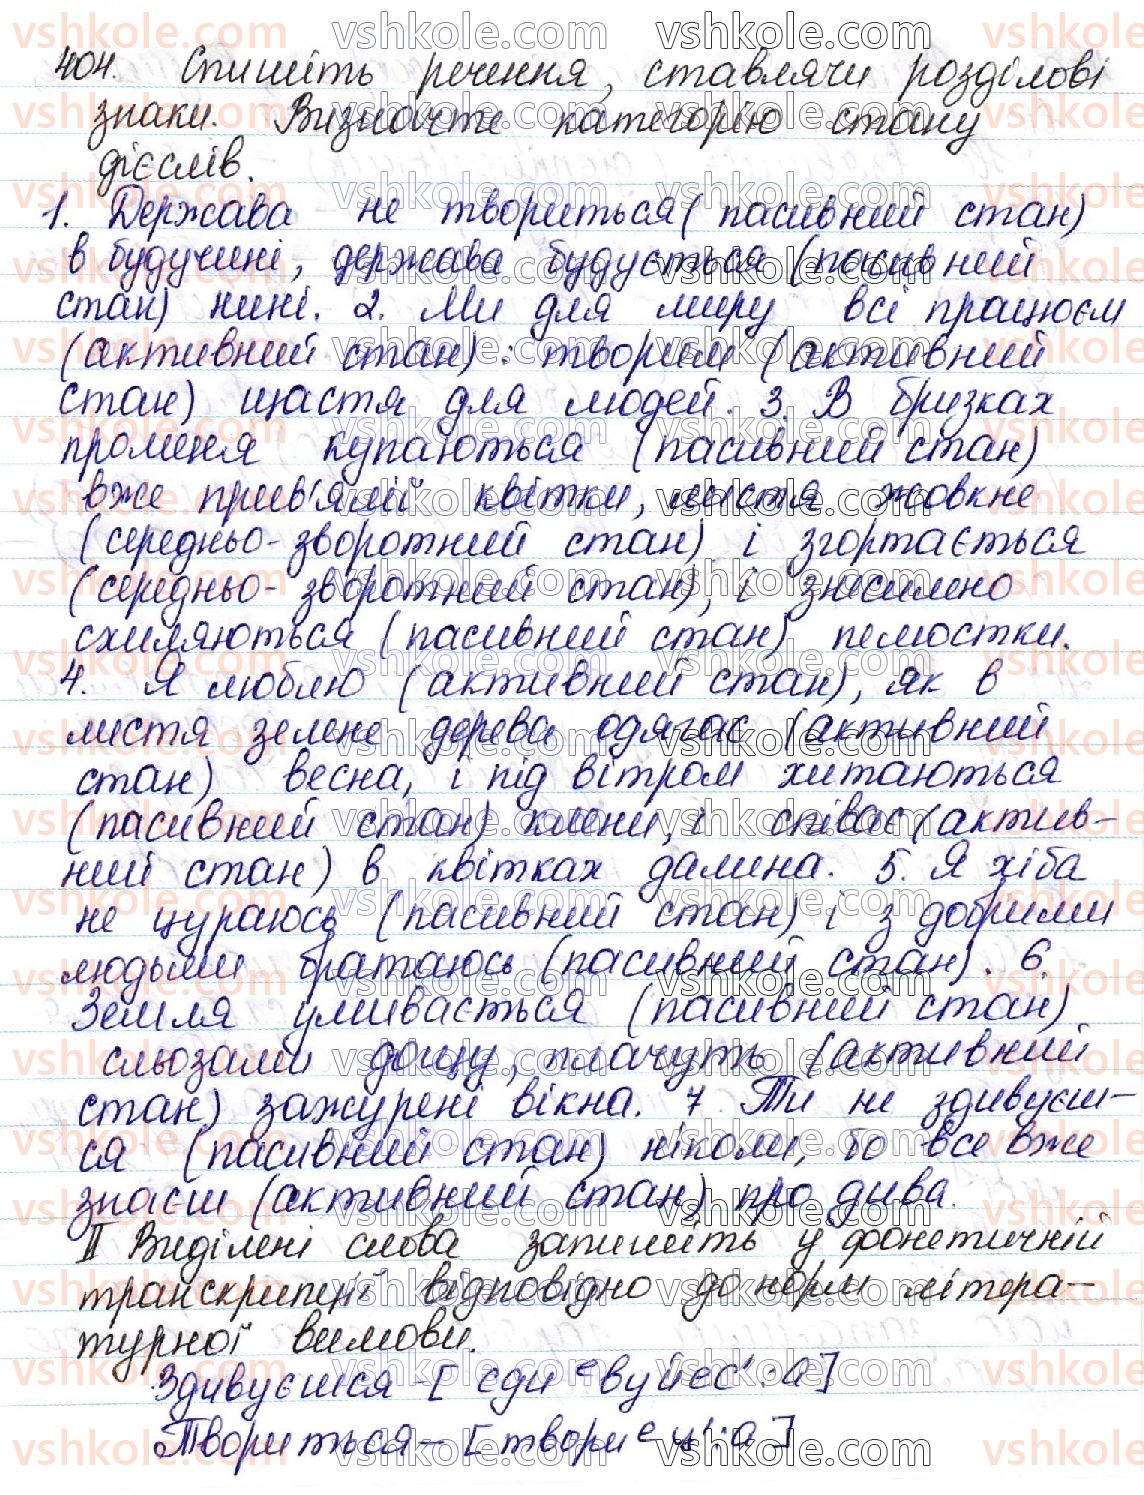 404. Спишіть речення, ставлячи розділові
знаки. Визначте категорію стану
дієслів.
1. Держава не твориться (пасивний стан)
в будучині, держава будується (пасивний
стан) нині. 2. Ми для миру всі працюєм
(активний стан): творим (активний
стан) щастя для людей. 3. В бризках
променя купаються (пасивний стан)
вже прив'ялій квітки, листя жовкне
(середньо-зворотний стан) і згортається
(середньо-зворотний стан), і знесилено
схиляються (пасивний стан) пелюстки.
4. Я люблю (активний стан), як в
листя зелене дерева одягає (активний
стан) весна, і під вітром хитаються
(пасивний стан) клени, і співає (актив-
ний стан) в квітках далина. 5. Я хіба
не цураюсь (пасивний стан) і з добрими
людьми братаюсь (пасивний стан). 6.
Земля умивається (пасивний стан)
сльозами дощу, плачуть (активний
стан) зажурені вікна. 7. Ти не здивуєш-
ся (пасивний стан) ніколи, бо все вже
знаєш (активний стан) про дива.
ІІ Виділені слова запишіть у фонетичній
транскрипції відповідно до норм літера-
турної вимови.
Здивуєшся - [ єди ᵉвуйєс':а]
Твориться - [твориᵉц':а]